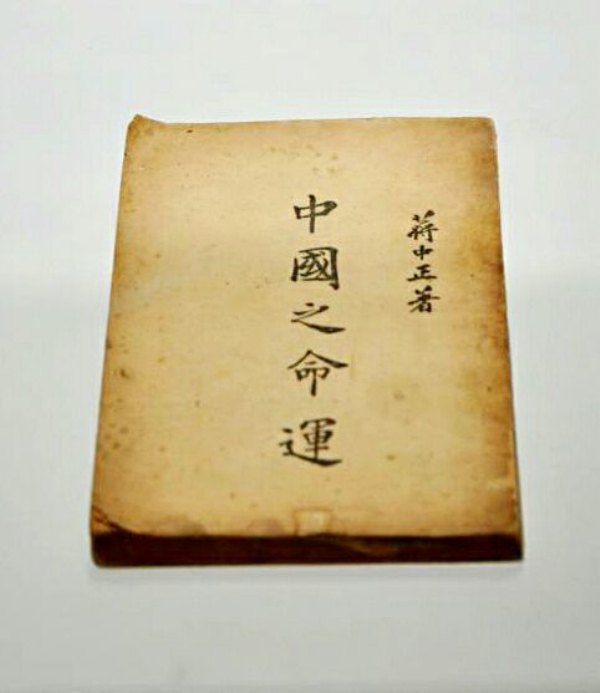 蔣中正著
中國之命運